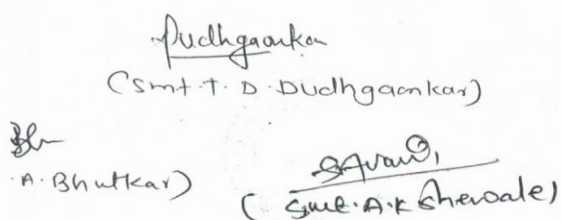 Dudhgaonkar
(Smt. T. D. Dudhgaonkar)
.A. Bhutkar)
(Smt. A.K Shewale)